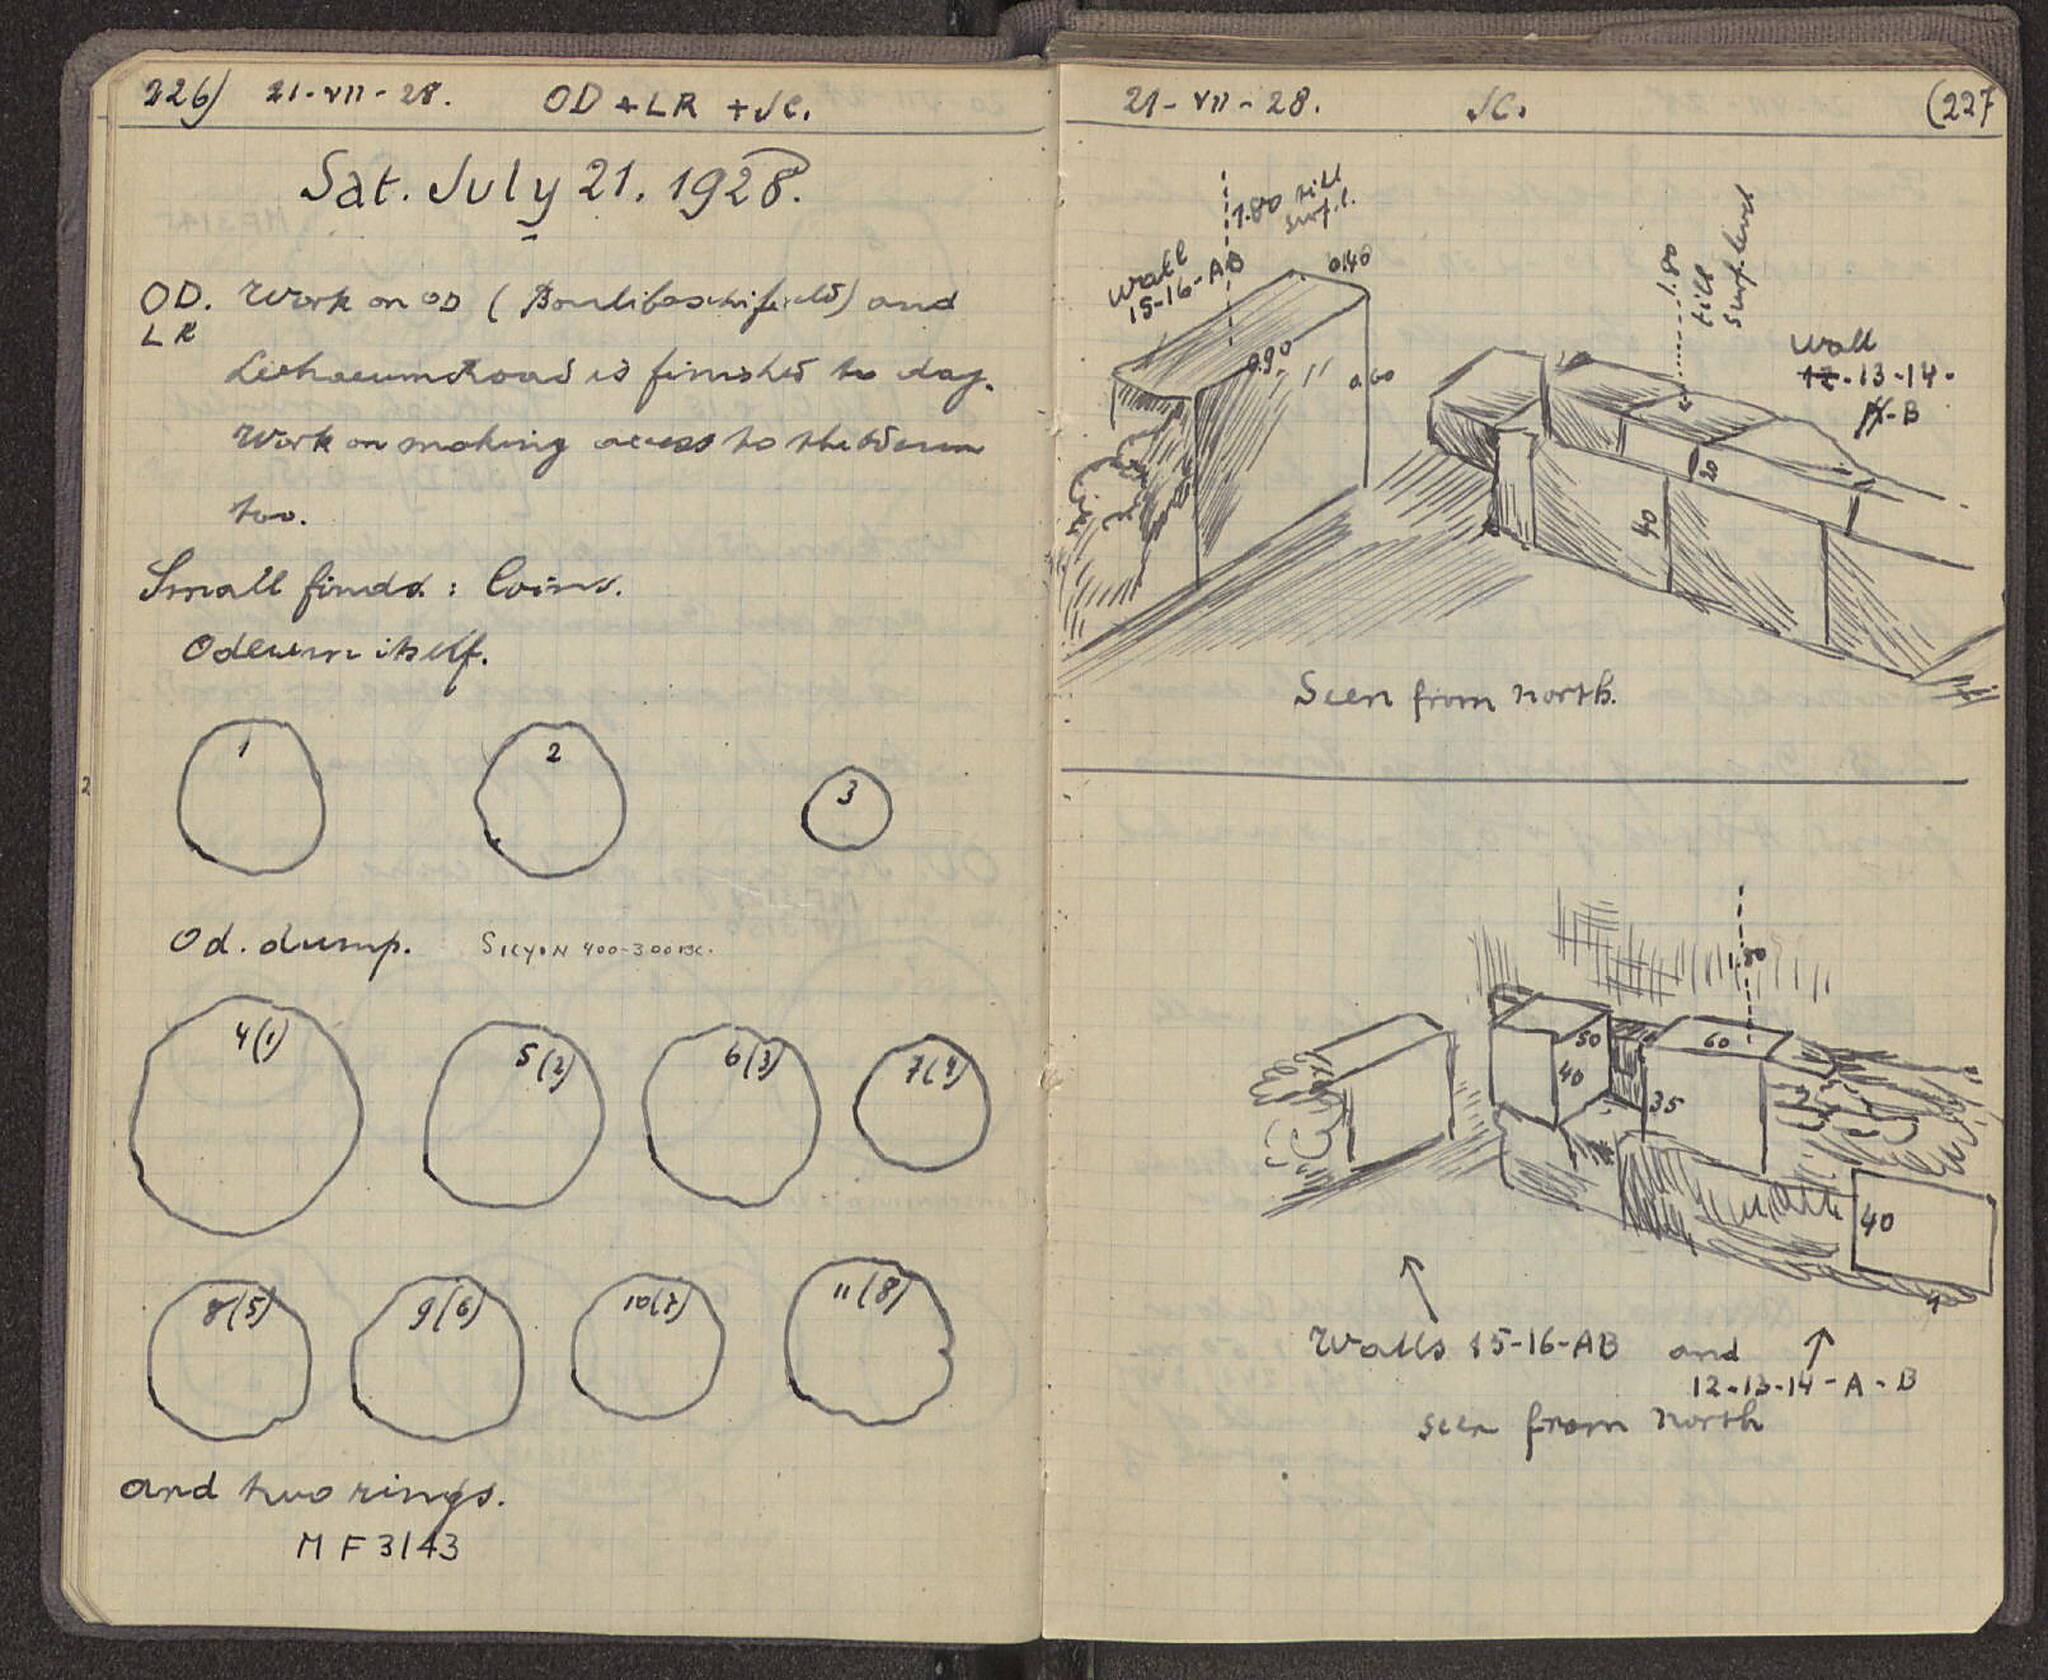 226) 21-VII-28. OD + LR + JC.
Sat. July 21. 1928.
OD. Work on OD ( ) and
LR
Lechaeum Road is finished to day.
Work on making access to the
too.
Small finds: Coins.
Odeum itself.
1 2 3
Od. dump. SICYON 400-300 BC.
4(1) 5(2) 6(3) 7(4)
8(5) 9(6) 10(7) 11(8)
and two rings.
MF 3143
2
21-VII-28. JC. (227
1.80 till
surf. l.
Wall
15-16-AB
0.40
0.90
0.60
1.80
till
surf. level
Wall
12-13-14-
A-B
20
40
Seen from north.
1.80
50
60
40
35
40
Walls 15-16-AB and
12-13-14-A-B
seen from north